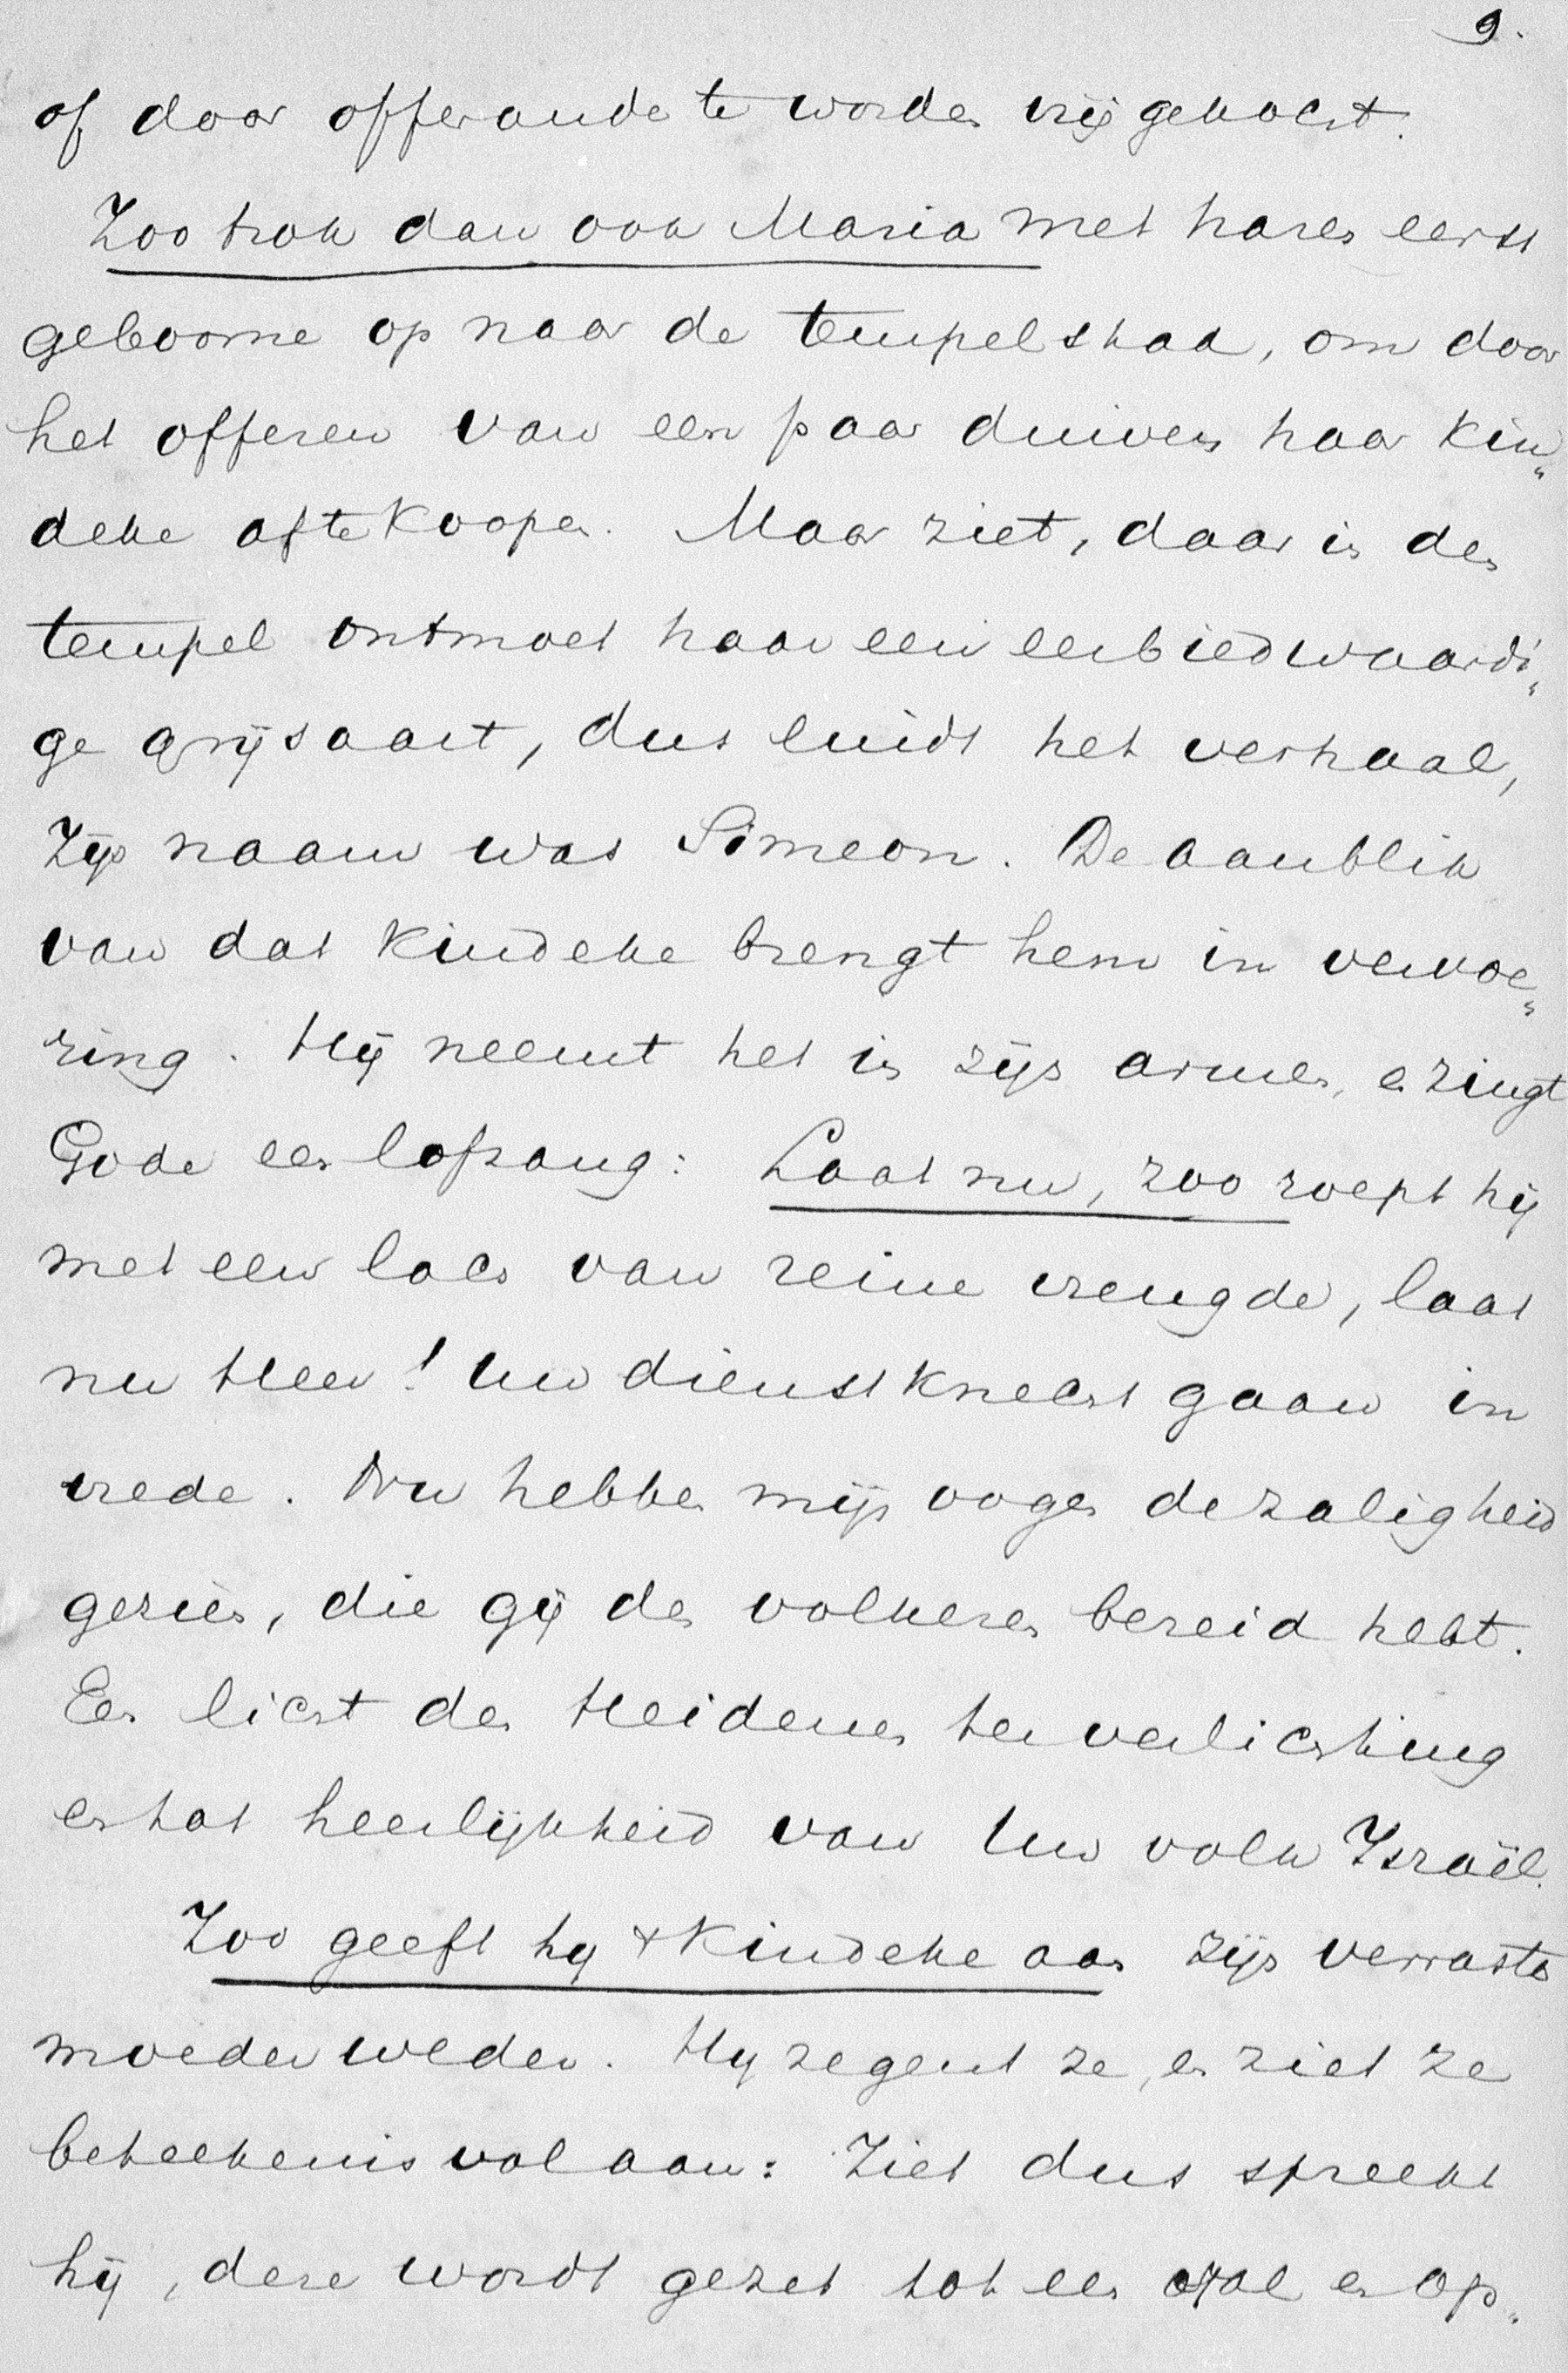 9.
of door offerande te worden vrijgekocht.
Zoo trok dan ook Maria met haren eerst
geboorne op naar de tempelstad, om door
het offeren van een paar duiven haar kin„
deke af te koopen. Maar ziet, daar in den
tempel ontmoet haar een eerbiedwaardi„
ge grijsaart, dus luidt het verhaal,
Zijn naam was Simeon. De aanblik
van dat kindeke brengt hem in vervoe„
ring. Hij neemt het in zijn armen, en zingt
Gode een lofzang: Laat nu, zoo roept hij
met een lach van reine vreugde, laat
nu Heer! Uw dienstknecht gaan in
vrede. Nu hebben mijn oogen de zaligheid
gezien, die gij den volkeren bereid hebt.
Een licht den Heidenen ter verlichting
en tot heerlijkheid van Uw volk Israël.
Zoo geeft hy 't Kindeke aan zijn verraste
moeder weder. Hy zegent ze, en ziet ze
beteekenisvol aan: Ziet dus spreekt
hij, deze wordt gezet tot een val en op„